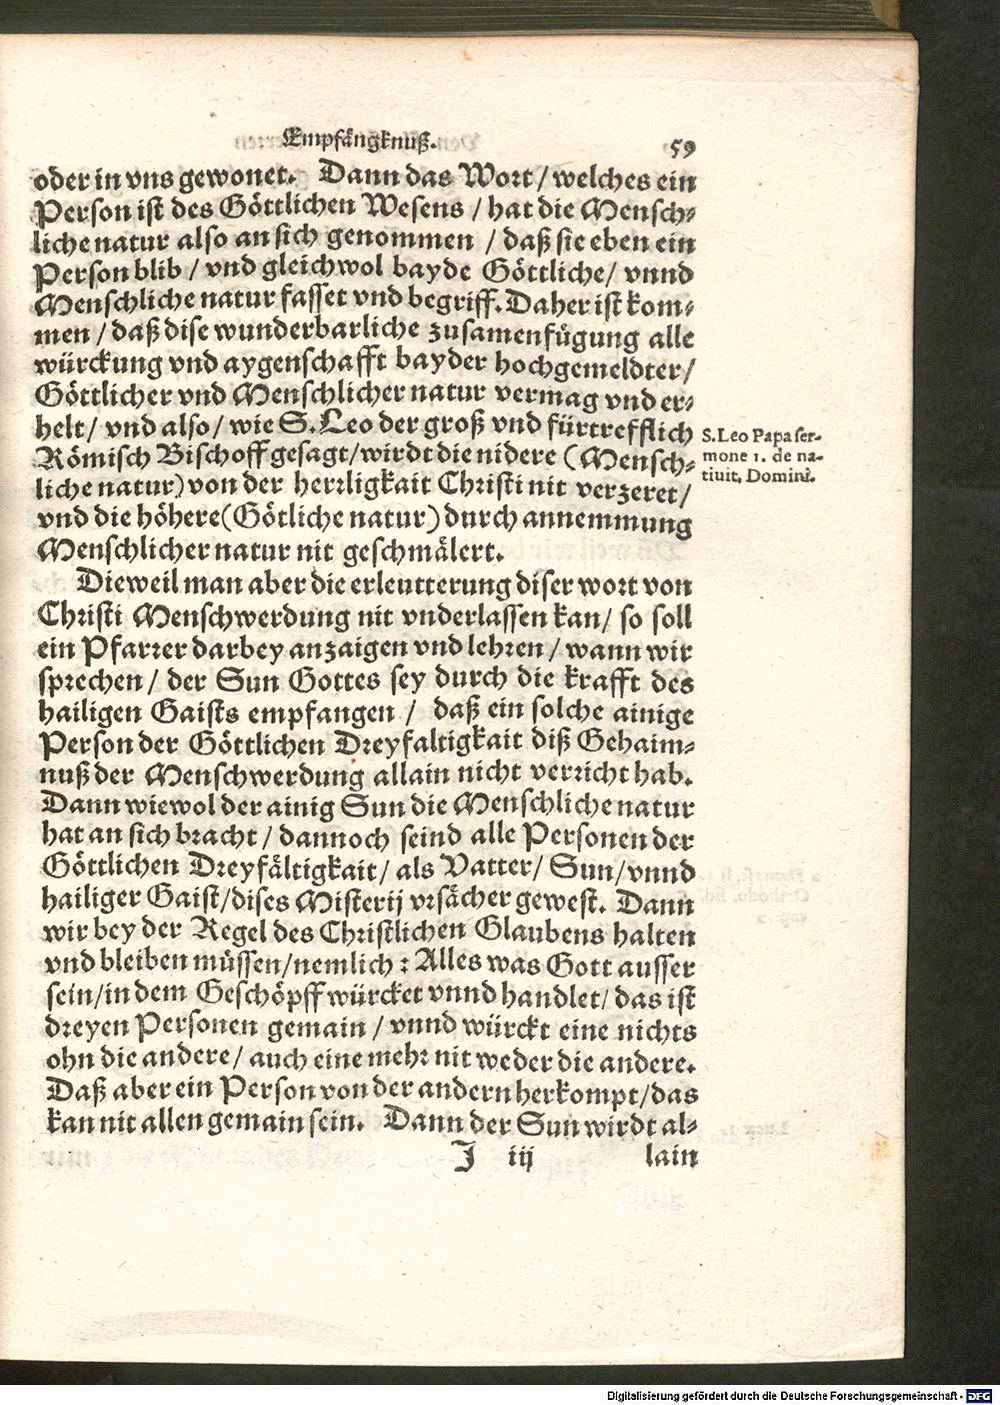 Empfängknuß. 59
oder in vns gewonet. Dann das Wort / welches ein
Person ist des Göttlichen Wesens / hat die Mensch-
liche natur also an sich genommen / daß sie eben ein
Person blib / vnd gleichwol bayde Göttliche / vnnd
Menschliche natur fasset vnd begriff. Daher ist kom-
men / daß dise wunderbarliche zusamenfügung alle
würckung vnd aygenschafft bayder hochgemeldter /
Göttlicher vnd Menschlicher natur vermag vnd er-
helt / vnd also / wie S. Leo der groß vnd fürtrefflich
Römisch Bischoff gesagt / wirdt die nidere (Mensch-
liche natur) von der herrligkait Christi nit verzeret /
vnd die höhere (Götliche natur) durch annemmung
Menschlicher natur nit geschmälert.
S. Leo Papa ser-
mone 1. de na-
tiuit. Domini.
Dieweil man aber die erleutterung diser wort von
Christi Menschwerdung nit vnderlassen kan / so soll
ein Pfarrer darbey anzaigen vnd lehren / wann wir
sprechen / der Sun Gottes sey durch die krafft des
hailigen Gaists empfangen / daß ein solche ainige
Person der Göttlichen Dreyfaltigkait diß Gehaim-
nuß der Menschwerdung allain nicht verricht hab.
Dann wiewol der ainig Sun die Menschliche natur
hat an sich bracht / dannoch seind alle Personen der
Göttlichen Dreyfältigkait / als Vatter / Sun / vnnd
hailiger Gaist / dises Misterij vrsächer gewest. Dann
wir bey der Regel des Christlichen Glaubens halten
vnd bleiben müssen / nemlich : Alles was Gott ausser
sein / in dem Geschöpff würcket vnnd handlet / das ist
dreyen Personen gemain / vnnd würckt eine nichts
ohn die andere / auch eine mehr nit weder die andere.
Daß aber ein Person von der andern herkompt / das
kan nit allen gemain sein. Dann der Sun wirdt al-
J iij lain
Digitalisierung gefördert durch die Deutsche Forschungsgemeinschaft - DFG